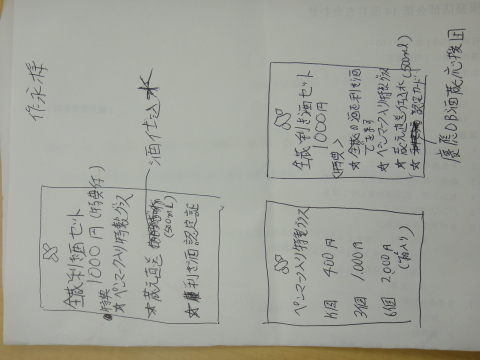 作永将
慶應OB酒蔵応援団
全蔵利き酒セット
1000円
<特典>
★全蔵の酒を利き酒
できます
★ペンマーク入り特製グラス
★蔵元直送仕込水
(500ml)
★認定カード
全蔵利き酒セット
1000円(特典付)
特典
★ペンマーク入り特製グラス
★蔵元直送
(500mL)
酒仕込水
★利き酒認定証
ペンマーク入り特製グラス
1個 400円
3個 1,000円
6個 2000円
(箱入り)